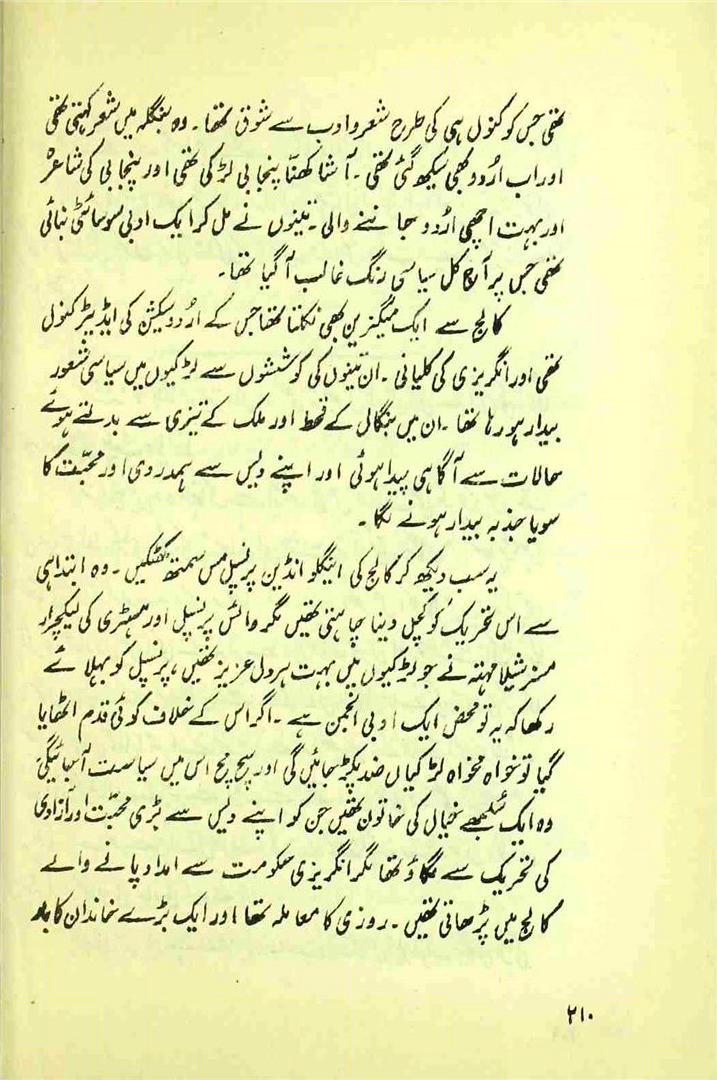 تھی جس کو کنول ہی کی طرح شعر و ادب سے شوق تھا۔ وہ بنگلہ میں شعر کہتی تھی
اور اب اردو بھی سیکھ گئی تھی۔ آشا کھنّا پنجابی لڑکی تھی اور پنجابی کی شاعرہ
اور بہت اچھی اردو جاننے والی۔ تینوں نے مل کر ایک ادبی سوسائٹی بنائی
تھی جس پر آج کل سیاسی رنگ غالب آ گیا تھا۔
کالج سے ایک میگزین بھی نکلتا تھا جس کے اُردو سیکشن کی ایڈیٹر کنول
تھی اور انگریزی کی کلیانی۔ ان تینوں کی کوششوں سے لڑکیوں میں سیاسی شعور
بیدار ہو رہا تھا۔ ان میں بنگال کے قحط اور ملک کے تیزی سے بدلتے ہوئے
حالات سے آگاہی پیدا ہوئی اور اپنے دیس سے ہمدردی اور محبّت کا
سویا جذبہ بیدار ہونے لگا۔
یہ سب دیکھ کر کالج کی اینگلو انڈین پرنسپل مس سمتھ کھٹکیں۔ وہ ابتدا ہی
سے اس تحریک کو کچل دینا چاہتی تھیں مگر وائس پرنسپل اور ہسٹری کی لیکچرار
مسز شیلا مہتہ نے جو لڑکیوں میں بہت ہر دل عزیز تھیں، پرنسپل کو بہلائے
رکھا کہ یہ تو محض ایک ادبی انجمن ہے۔ اگر اس کے خلاف کوئی قدم اٹھایا
گیا تو خواہ مخواہ لڑکیاں ضد پکڑ جائیں گی اور سچ مچ اس میں سیاست آ جائیگی
وہ ایک سُلجھے خیال کی خاتون تھیں جن کو اپنے دیس سے بڑی محبّت اور آزادی
کی تحریک سے لگاؤ تھا مگر انگریزی حکومت سے امداد پانے والے
کالج میں پڑھاتی تھیں۔ روزی کا معاملہ تھا اور ایک بڑے خاندان کا بار
۲۱۰